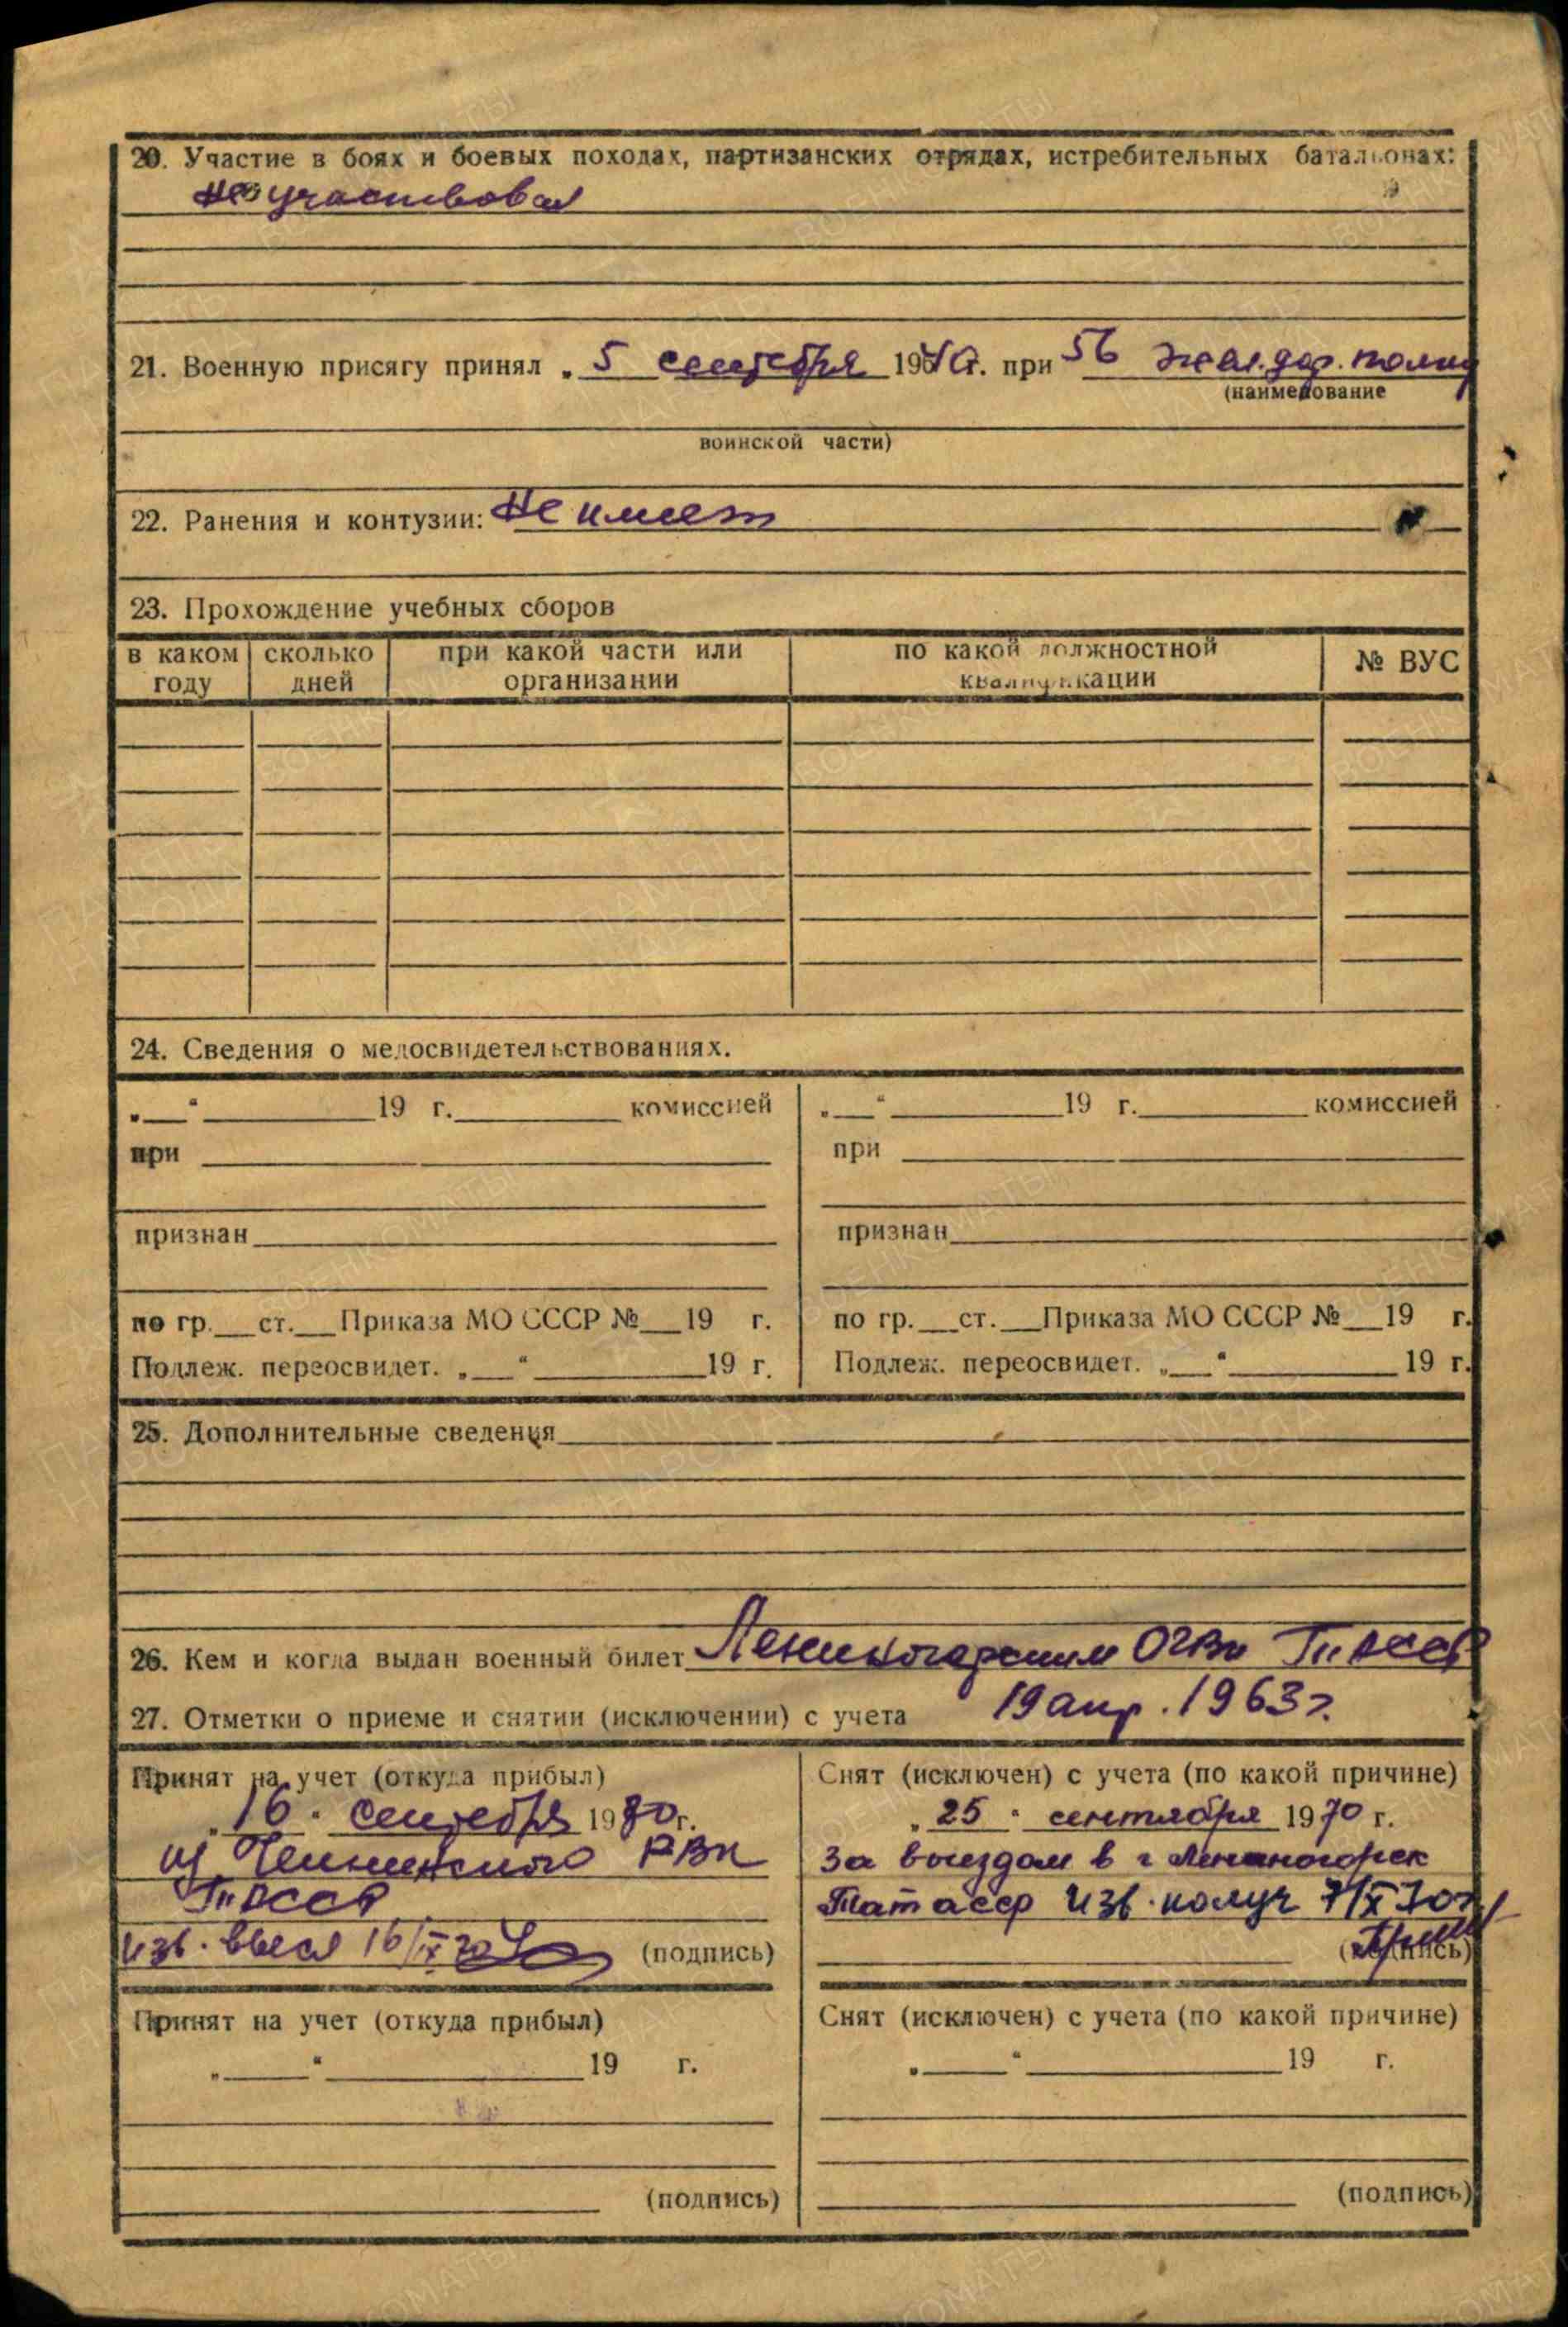 20. Участие в боях и боевых походах, партизанских отрядах, истребительных батальонах:
не участвовал
21. Военную присягу принял „ 5 сентября 1940г. при 56 жел. дор. полку
(наименование
воинской части)
22. Ранения и контузии: Не имеет
23. Прохождение учебных сборов
в каком году | сколько дней | при какой части или организации | по какой должностной квалификации | № ВУС
24. Сведения о медосвидетельствованиях.
„___“ ______ 19 г. ______ комиссией | „___“ ______ 19 г. ______ комиссией
при | при
признан | признан
по гр.___ст.___Приказа МО СССР №___19 г. | по гр.___ст.___Приказа МО СССР №___19 г.
Подлеж. переосвидет. „___“ ______ 19 г. | Подлеж. переосвидет. „___“ ______ 19 г.
25. Дополнительные сведения
26. Кем и когда выдан военный билет Лениногорским ОГВК ТАССР
27. Отметки о приеме и снятии (исключении) с учета 19 апр. 1963г.
Принят на учет (откуда прибыл) | Снят (исключен) с учета (по какой причине)
„16“ сентября 1970г. | „25“ сентября 1970 г.
из РВК | За выездом в г Лениногорск
ТАССР | Тат асср изв. получ 7/X 70г
изв. высл 16/IX 70 (подпись) | (подпись)
Принят на учет (откуда прибыл) | Снят (исключен) с учета (по какой причине)
„___“ ______ 19 г. | „___“ ______ 19 г.
(подпись) | (подпись)
ПАМЯТЬ НАРОДА
ВОЕНКОМАТЫ